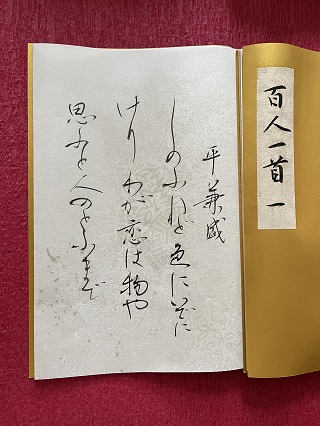 百人一首 一
平兼盛
しのふれど色にいでに
けりわが恋は物や
思ふと人のとふまで